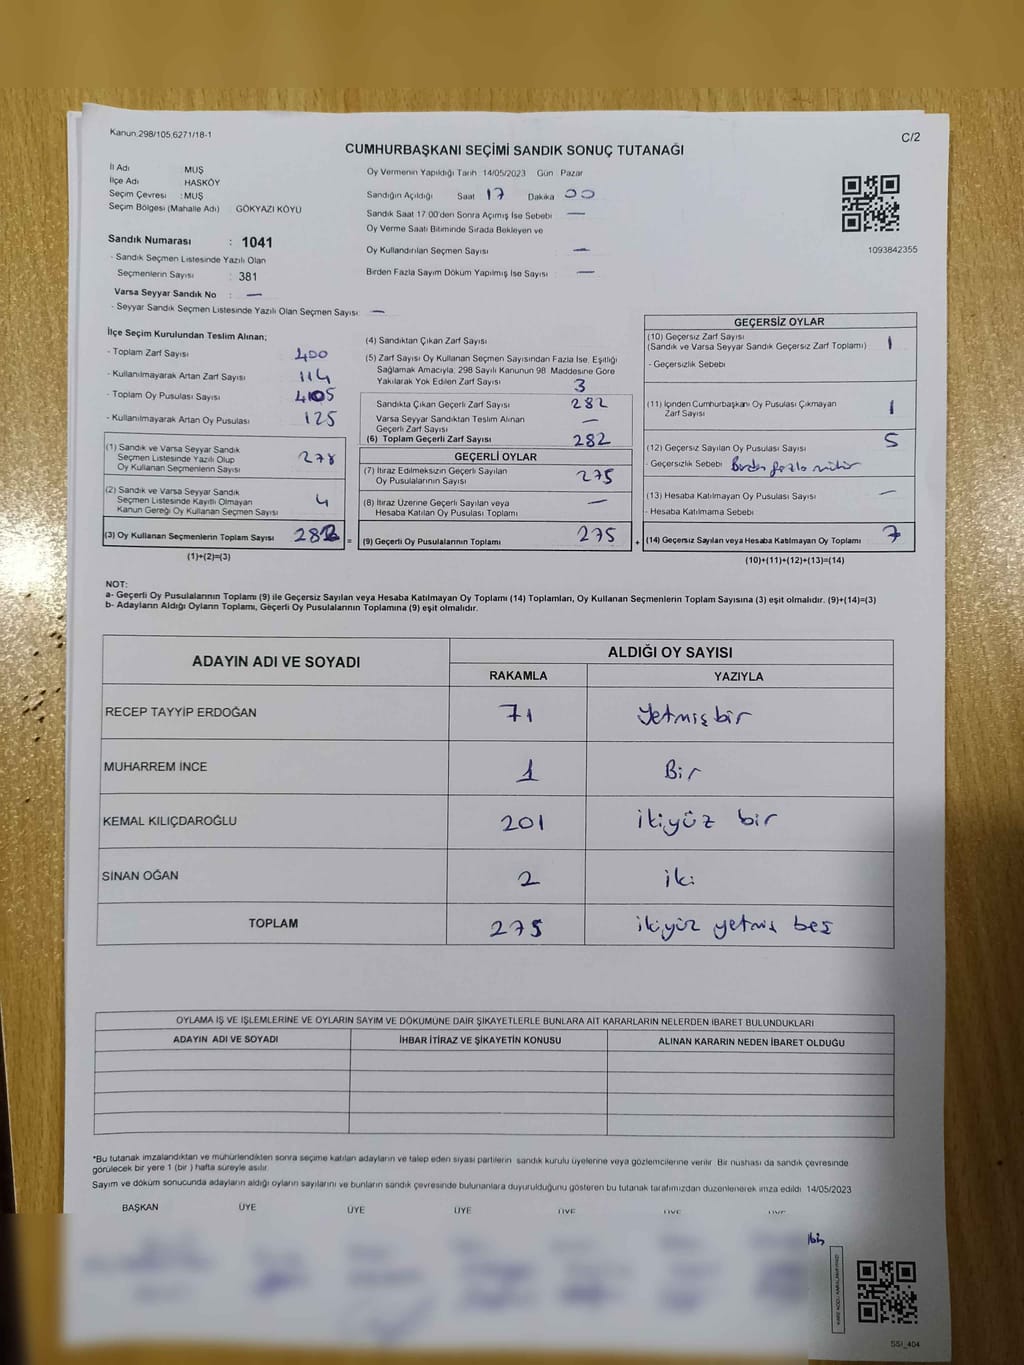 Kanun:298/105,6271/18-1
C/2
CUMHURBAŞKANI SEÇİMİ SANDIK SONUÇ TUTANAĞI
İl Adı MUŞ
İlçe Adı HASKÖY
Seçim Çevresi : MUŞ
Seçim Bölgesi (Mahalle Adı) GÖKYAZI KÖYÜ
Sandık Numarası : 1041
- Sandık Seçmen Listesinde Yazılı Olan
Seçmenlerin Sayısı : 381
Varsa Seyyar Sandık No : —
- Seyyar Sandık Seçmen Listesinde Yazılı Olan Seçmen Sayısı: —
Oy Vermenin Yapıldığı Tarih 14/05/2023 Gün Pazar
Sandığın Açıldığı Saat 17 Dakika 00
Sandık Saat 17:00'den Sonra Açılmış İse Sebebi —
Oy Verme Saati Bitiminde Sırada Bekleyen ve
Oy Kullandırılan Seçmen Sayısı : —
Birden Fazla Sayım Döküm Yapılmış İse Sayısı : —
1093842355
İlçe Seçim Kurulundan Teslim Alınan;
- Toplam Zarf Sayısı : 400
- Kullanılmayarak Artan Zarf Sayısı : 114
- Toplam Oy Pusulası Sayısı : 405
- Kullanılmayarak Artan Oy Pusulası : 125
(1) Sandık ve Varsa Seyyar Sandık
Seçmen Listesinde Yazılı Olup
Oy Kullanan Seçmenlerin Sayısı 278
(2) Sandık ve Varsa Seyyar Sandık
Seçmen Listesinde Kayıtlı Olmayan
Kanun Gereği Oy Kullanan Seçmen Sayısı 4
(3) Oy Kullanan Seçmenlerin Toplam Sayısı 282 =
(1)+(2)=(3)
(4) Sandıktan Çıkan Zarf Sayısı
(5) Zarf Sayısı Oy Kullanan Seçmen Sayısından Fazla İse, Eşitliği
Sağlamak Amacıyla, 298 Sayılı Kanunun 98. Maddesine Göre
Yakılarak Yok Edilen Zarf Sayısı 3
Sandıkta Çıkan Geçerli Zarf Sayısı 282
Varsa Seyyar Sandıktan Teslim Alınan
Geçerli Zarf Sayısı —
(6) Toplam Geçerli Zarf Sayısı 282
GEÇERLİ OYLAR
(7) İtiraz Edilmeksizin Geçerli Sayılan
Oy Pusulalarının Sayısı 275
(8) İtiraz Üzerine Geçerli Sayılan veya
Hesaba Katılan Oy Pusulası Toplamı —
(9) Geçerli Oy Pusulalarının Toplamı 275 +
GEÇERSİZ OYLAR
(10) Geçersiz Zarf Sayısı
(Sandık ve Varsa Seyyar Sandık Geçersiz Zarf Toplamı) 1
- Geçersizlik Sebebi
(11) İçinden Cumhurbaşkanı Oy Pusulası Çıkmayan
Zarf Sayısı 1
(12) Geçersiz Sayılan Oy Pusulası Sayısı 5
- Geçersizlik Sebebi Birden fazla mühür
(13) Hesaba Katılmayan Oy Pusulası Sayısı —
- Hesaba Katılmama Sebebi
(14) Geçersiz Sayılan veya Hesaba Katılmayan Oy Toplamı 7
(10)+(11)+(12)+(13)=(14)
NOT:
a- Geçerli Oy Pusulalarının Toplamı (9) ile Geçersiz Sayılan veya Hesaba Katılmayan Oy Toplamı (14) Toplamları, Oy Kullanan Seçmenlerin Toplam Sayısına (3) eşit olmalıdır. (9)+(14)=(3)
b- Adayların Aldığı Oyların Toplamı, Geçerli Oy Pusulalarının Toplamına (9) eşit olmalıdır.
ADAYIN ADI VE SOYADI ALDIĞI OY SAYISI
RAKAMLA YAZIYLA
RECEP TAYYİP ERDOĞAN 71 Yetmiş bir
MUHARREM İNCE 1 Bir
KEMAL KILIÇDAROĞLU 201 ikiyüz bir
SİNAN OĞAN 2 iki
TOPLAM 275 ikiyüz yetmiş beş
OYLAMA İŞ VE İŞLEMLERİNE VE OYLARIN SAYIM VE DÖKÜMÜNE DAİR ŞİKAYETLERLE BUNLARA AİT KARARLARIN NELERDEN İBARET BULUNDUKLARI
ADAYIN ADI VE SOYADI İHBAR İTİRAZ VE ŞİKAYETİN KONUSU ALINAN KARARIN NEDEN İBARET OLDUĞU
*Bu tutanak imzalandıktan ve mühürlendikten sonra seçime katılan adayların ve talep eden siyasi partilerin sandık kurulu üyelerine veya gözlemcilerine verilir. Bir nushası da sandık çevresinde
görülecek bir yere 1 (bir ) hafta süreyle asılır.
Sayım ve döküm sonucunda adayların aldığı oyların sayılarını ve bunların sandık çevresinde bulunanlara duyurulduğunu gösteren bu tutanak tarafımızdan düzenlenerek imza edildi. 14/05/2023
BAŞKAN ÜYE ÜYE ÜYE ÜYE ÜYE ÜYE
SSI_404